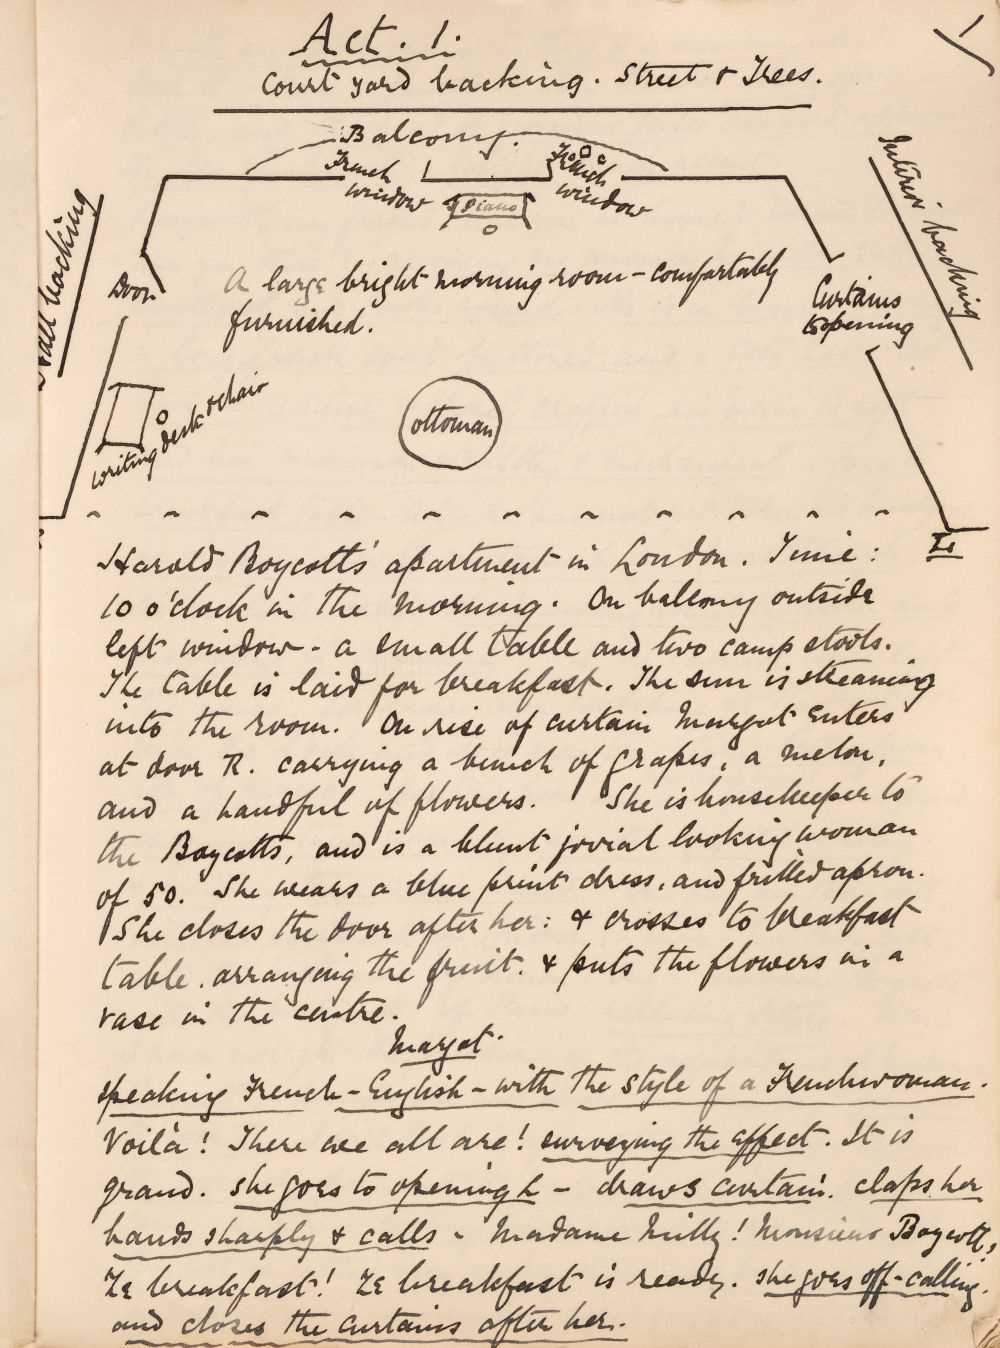 1
Act. 1.
Court yard backing. Street & Trees.
Balcony.
French window
French window
Piano
Hall backing
Interior backing
Door
A large bright morning room - comfortably
furnished.
Curtains
opening
writing desk & chair
ottoman
Harold Boycotts' apartment in London. Time:
10 o'clock in the morning. On balcony outside
left window - a small table and two camp stools.
The table is laid for breakfast. The sun is streaming
into the room. On rise of curtain Margot enters
at door R. carrying a bunch of grapes, a melon,
and a handful of flowers. She is housekeeper to
the Boycotts, and is a blunt jovial looking woman
of 50. She wears a blue print dress, and frilled apron.
She closes the door after her: & crosses to breakfast
table. arranging the fruit. & puts the flowers in a
vase in the centre.
Margot.
speaking French - English - with the style of a Frenchwoman.
Voilà! There we all are! surveying the affect. It is
grand. she goes to opening L - draws curtain. claps her
hands sharply & calls - Madame Milly! Monsieur Boycott!
Ze breakfast! Ze breakfast is ready. she goes off - calling.
and closes the curtains after her.